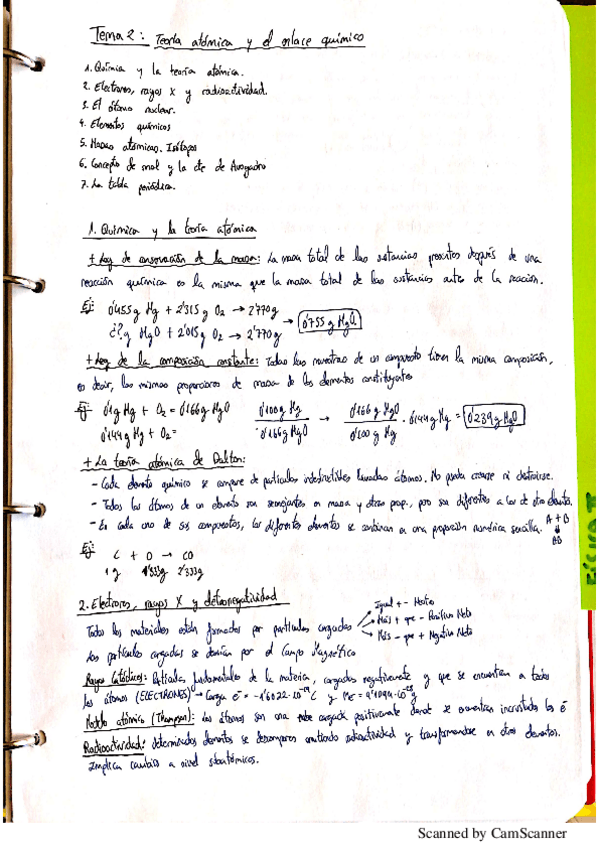 Tema 2: Teoría atómica y el enlace químico
1. Química y la teoría atómica.
2. Electrones, rayos X y radioactividad.
3. El átomo nuclear.
4. Elementos químicos
5. Masas atómicas. Isótopos
6. Concepto de mol y la cte de Avogadro
7. La tabla periódica.
1. Química y la teoría atómica
+ Ley de conservación de la masa: La masa total de las sustancias presentes después de una
reacción química es la misma que la masa total de las sustancias antes de la reacción.
Ej: 0'455 g Hg + 2'315 g O2 → 2'770 g
¿?g HgO + 2'015 g O2 → 2'770 g → 0'755 g HgO
+ Ley de la composición constante: Todas las muestras de un compuesto tienen la misma composición,
es decir, las mismas proporciones de masa de los elementos constituyentes
Ej: 0'1 g Hg + O2 = 0'166 g HgO 0'100 g Hg / 0'166 g HgO → 0'166 g HgO / 0'100 g Hg · 0'144 g Hg = 0'239 g HgO
0'144 g Hg + O2 =
+ La teoría atómica de Dalton:
- Cada elemento químico se compone de partículas indestructibles llamadas átomos. No puede crearse ni destruirse.
- Todos los átomos de un elemento son semejantes en masa y otras prop., pero son diferentes a los de otro elemento.
- En cada uno de sus compuestos, los diferentes elementos se combinan en una proporción numérica sencilla. A + B
AB
Ej: C + O → CO
1 g 1'333g 2'333g
2. Electrones, rayos X y electronegatividad
Todos los materiales están formados por partículas cargadas
Igual + - Neutro
Más + que - Positivo Neto
Más - que + Negativo Neto
Las partículas cargadas se desvían por el Campo Magnético
Rayos Catódicos: Partículas fundamentales de la materia, cargadas negativamente y que se encuentran en todos
los átomos (ELECTRONES) → Carga E = -1'6022·10^-19 C y ME = 9'1094·10^-28 g
Modelo atómico (Thompson): Los átomos son una nube cargada positivamente donde se encuentran incrustados los ē
Radioactividad: determinados elementos se descomponen emitiendo radioactividad y transformándose en otros elementos.
Implica cambios a nivel subatómicos.
FÍSICA I
Scanned by CamScanner